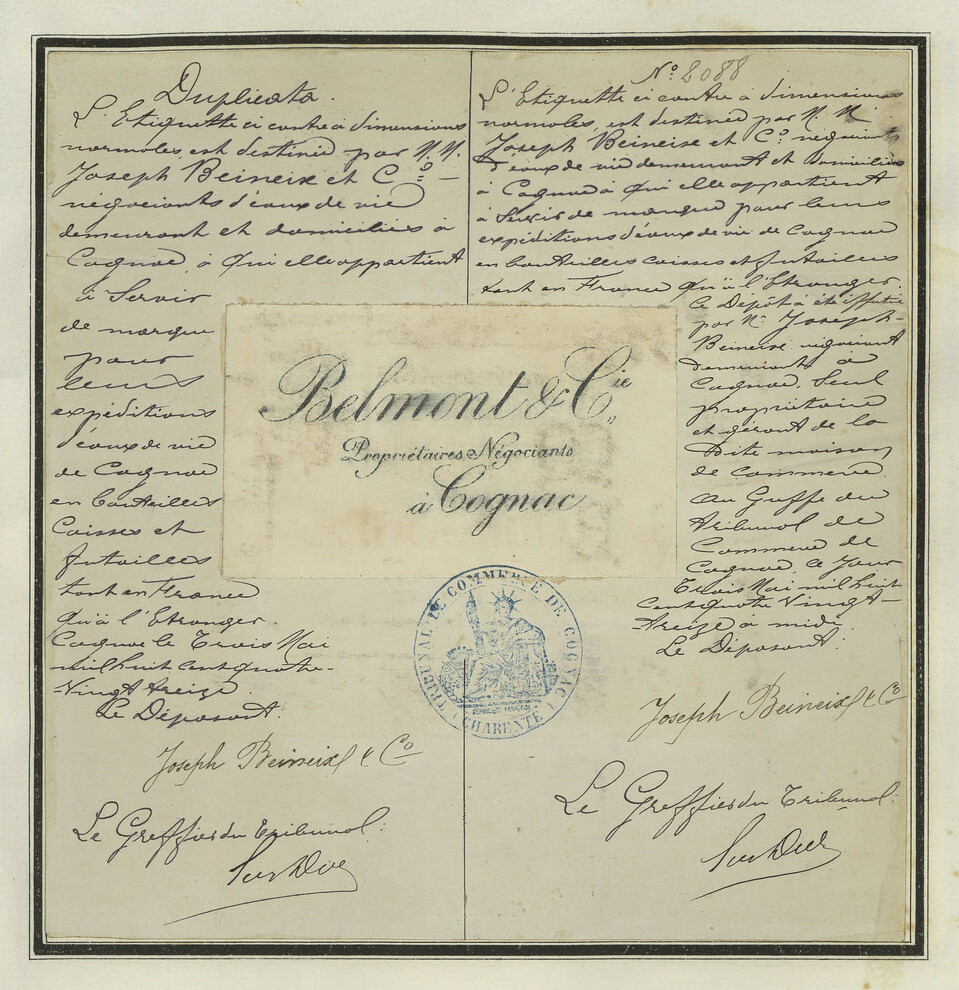 Duplicata.
L'Etiquette ci contre à dimensions
normales, est destinée par M.M.
Joseph Beineix et Co
négociants d'eaux de vie
demeurant et domiciliés à
Cognac, à qui elle appartient
à Servir
de marque
pour
leurs
expéditions
d'eaux de vie
de Cognac
en bouteilles
Caisses et
futailles
tant en France
qu'à l'Etranger.
Cognac le Trois Mai
mil huit cent quatre-
-Vingt treize.
Le Déposant.
Joseph Beineix & Co
Le Greffier du Tribunal.
No 2088
L'Etiquette ci contre à dimensions
normales, est destinée par M. M.
Joseph Beineix et Co négociants
d'eaux de vie demeurant et domiciliés
à Cognac à qui elle appartient
à Servir de marque pour leurs
expéditions d'eaux de vie de Cognac
en bouteilles caisses et futailles
tant en France qu'à l'Etranger.
Ce Dépôt a été effectué
par Mr Joseph
Beineix négociant
demeurant à
Cognac, Seul
propriétaire
et gérant de la
Dite maison
de commerce
au Greffe du
Tribunal de
Commerce de
Cognac, ce jour
Trois Mai mil huit
cent quatre Vingt-
treize à midi.
Le Déposant.
Joseph Beineix & Co
Le Greffier du Tribunal.
Belmont & Cie
Propriétaires Négociants
à Cognac
TRIBUNAL DE COMMERCE DE COGNAC
(CHARENTE)